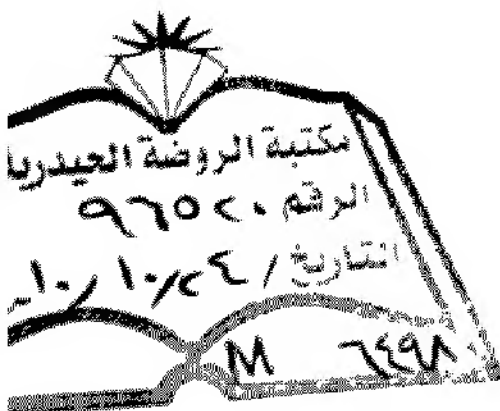 مكتبة الروضة الحيدرية
الرقم ٩٦٥٢٠
التاريخ / ٢٤/١٠ /١٠
M ٦٤٩٨